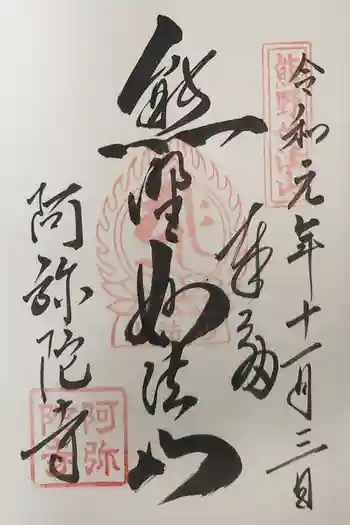 令和元年十一月三日
奉拝
熊野妙法山
阿弥陀寺
阿弥陀寺